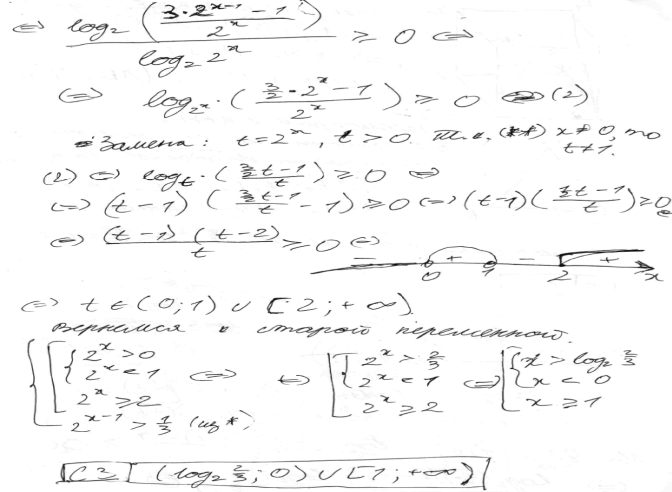 ⇔ log₂ ((3·2ˣ⁻¹ − 1) / 2ˣ) / log₂ 2ˣ ≥ 0 ⇔
⇔ log_{2ˣ} · ((3/2 · 2ˣ − 1) / 2ˣ) ≥ 0 ⇔ (2)
Замена: t = 2ˣ, t > 0. Т.к. (**) x ≠ 0, то t ≠ 1.
(2) ⇔ log_t · ((3/2 t − 1) / t) ≥ 0 ⇔
⇔ (t − 1) ((3/2 t − 1) / t − 1) ≥ 0 ⇔ (t − 1) ((½t − 1) / t) ≥ 0
⇔ (t − 1) (t − 2) / t ≥ 0 ⇔
− 0 + 1 − 2 + x
⇔ t ∈ (0; 1) ∪ [2; +∞).
Вернемся к старой переменной.
{ [ { 2ˣ > 0 2ˣ < 1 2ˣ ≥ 2 2ˣ⁻¹ > 1/3 (из *) ⇔ ⇔ [ { 2ˣ > 2/3 2ˣ < 1 2ˣ ≥ 2 ⇔ [ { x > log₂ 2/3 x < 0 x ≥ 1
C3 (log₂ 2/3; 0) ∪ [1; +∞)